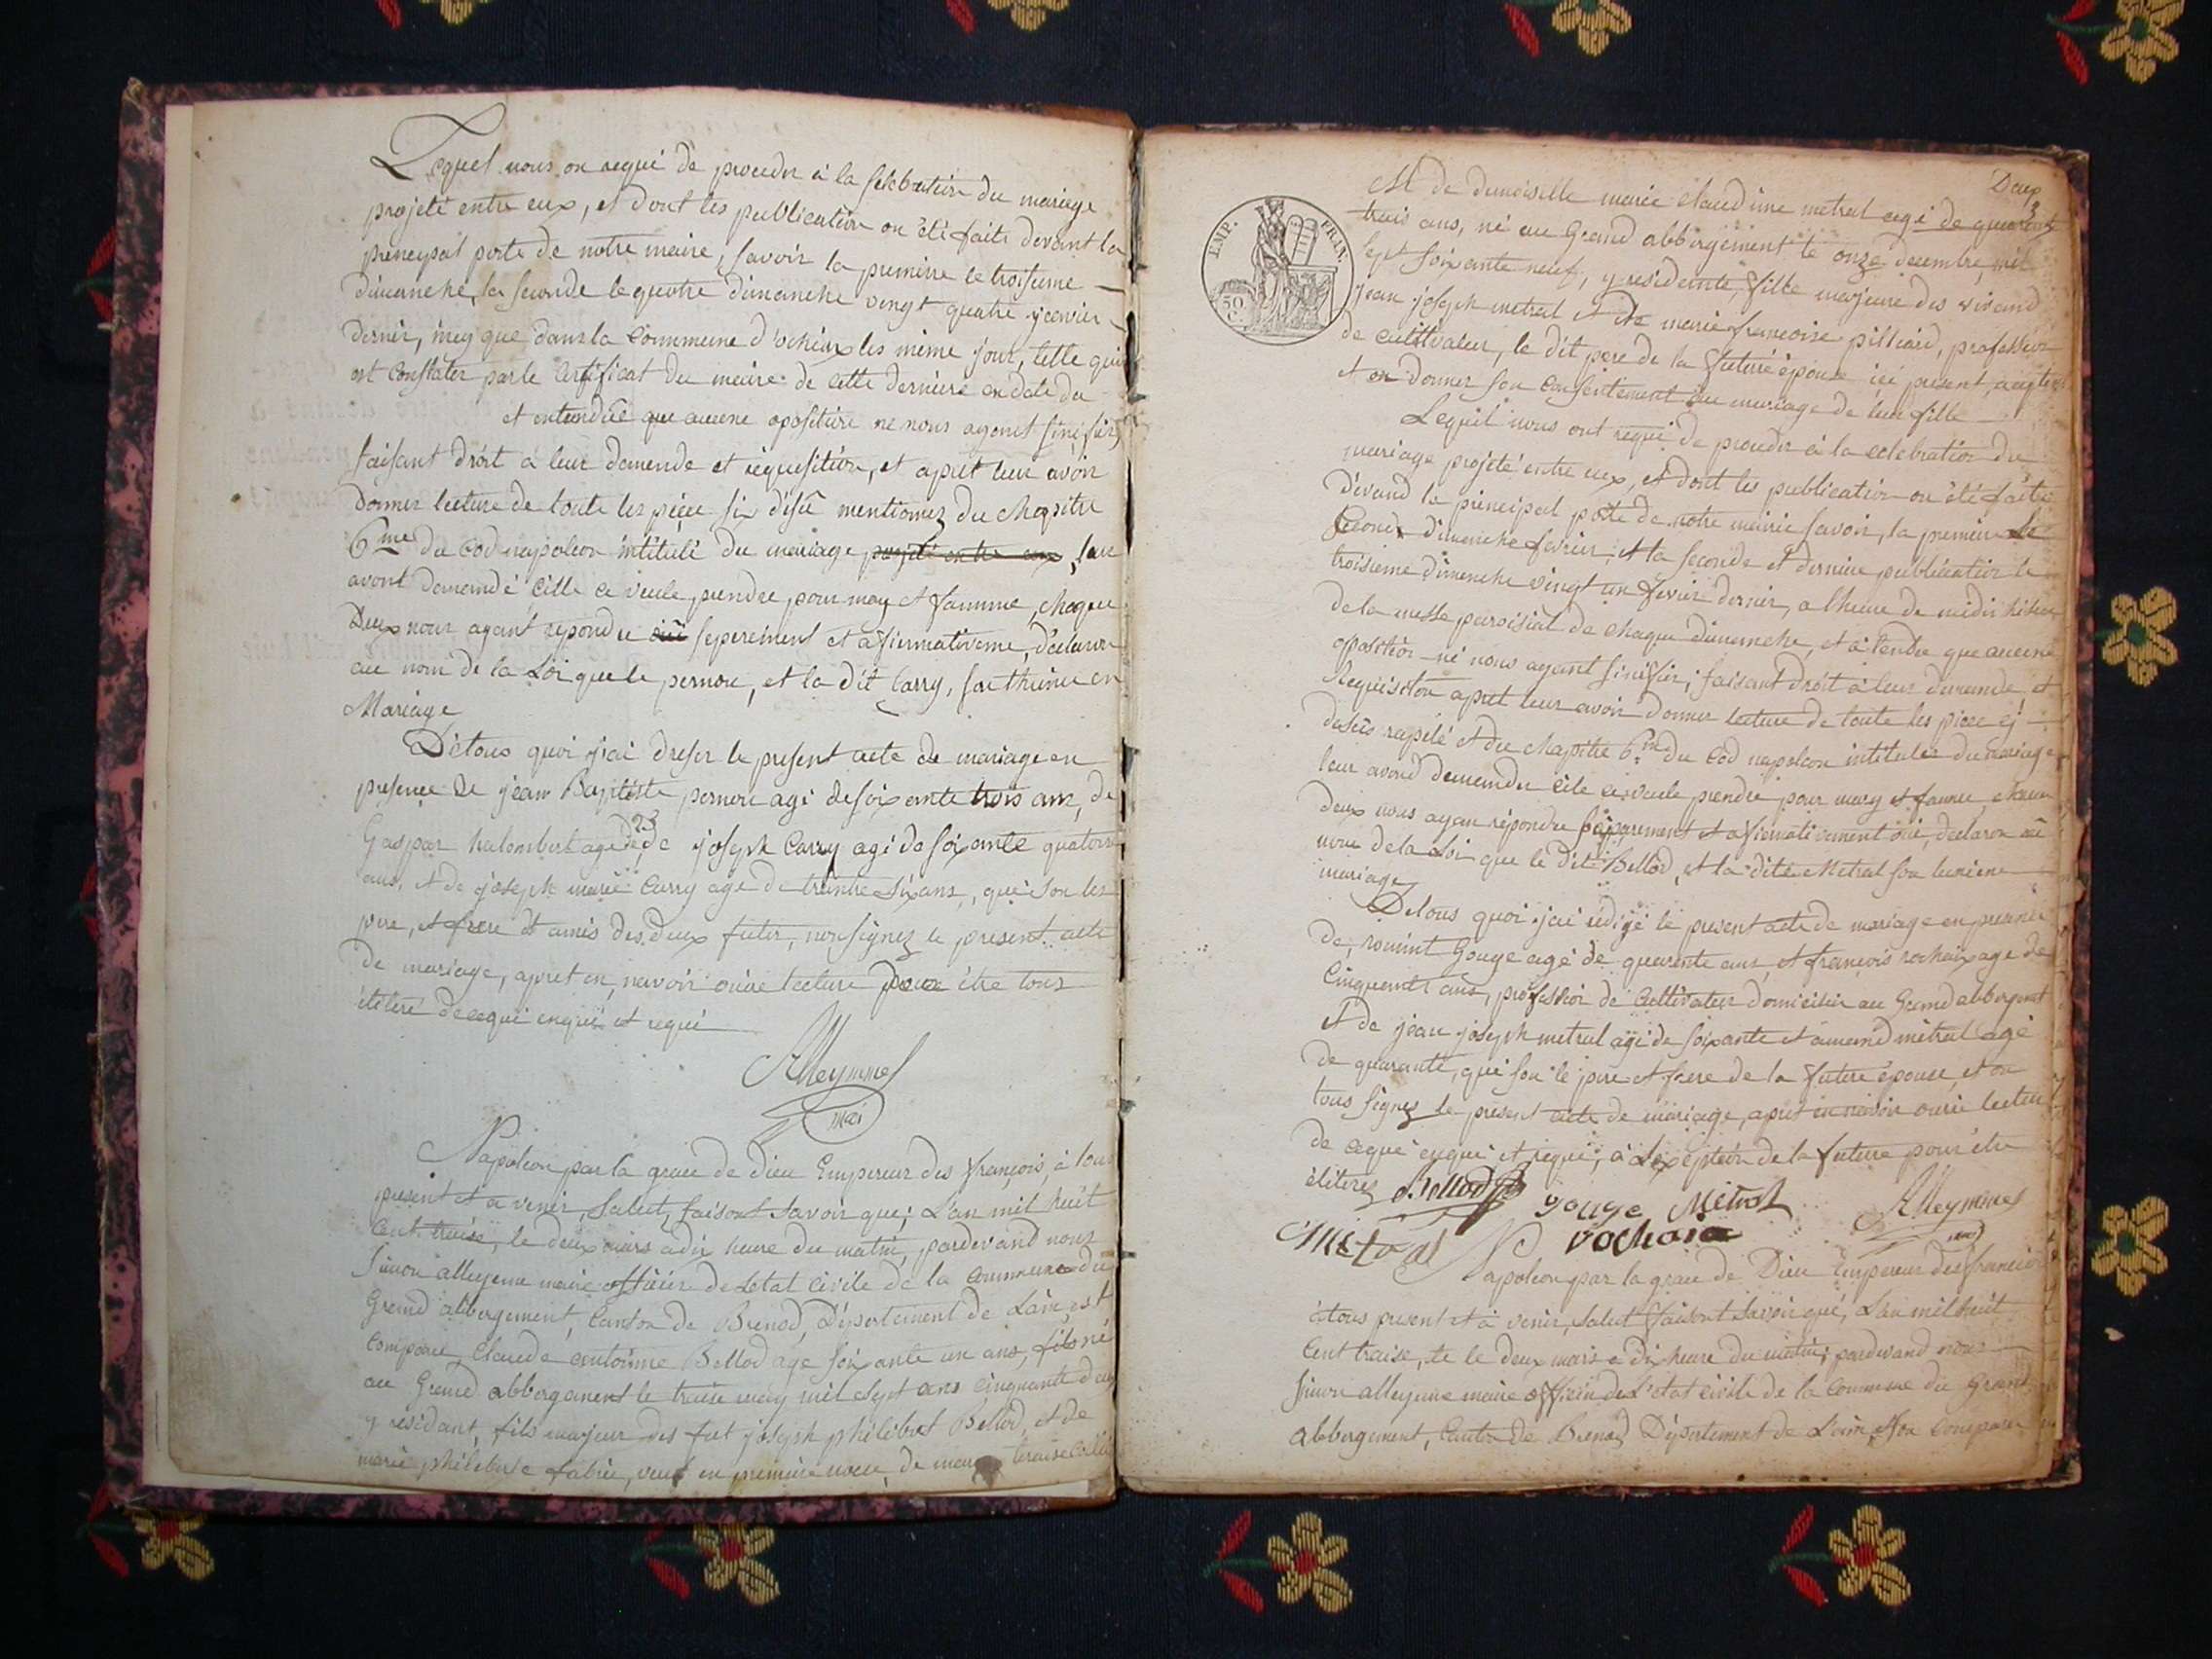 Lequel nous on requi de proceder à la selebration du mariage
projeté entre eux, et dont les publication on été faite devant la
preneypal porte de notre maire, savoir la premiere le troisieme
dimanche, la seconde le quatre dimanche vingt quatre janvier
dernier, que dans la Commune d'ochiax les même jour, telle qui
est Constater par le Certificat du maire de cette derniere en date du
et entendue que aucune opositure ne nous ayant sinifier
faisant droit a leur demende et requisition, et apret leur avoir
donner lecture de toute les pieces si disû mentionnez du chapitre
6me du Cod napoleon intitulé du mariage projeté entre eux, leur
avont demendé cille ce veule prendre pour mary et famme, chaque
Deux nous ayant repondu oui separement et afirmativeme, declaron
au nom de la Loi que le pernou, et la dit Carry, son thunu en
Mariage
De tous quoi j'ai dreser le present acte de mariage en
presence de jean Baptiste pernou agé de soixante trois ans, de
Gaspar halombert agé de 23 de joseph Carry agé de soixante quatorze
ans, et de joseph marie Carry age de trentre six ans, qui son les
pere, et frere et amis des deux futur, nonsignez le present acte
de mariage, apret en navoir ouïre lecture pour être tous
iliteré de cequi enqui et requi
Alleymme
mai
Napoleon par la grace de Dieu Empereur des françois, à tous
present et a venir, Salut, faisont Savoir que; L'an mil huit
Cent traise, le deux mars a dix heure du matin, pardevand nous
Simon alleyeme maire officier de Letat civile de la Commune du
Grend abbergement, Canton de Brenod, Département de Lain, est
comparu, Claude Bellod age soixante un ans, fils né
au Grend abbergement le traise may mil Sept ans cinquante deux
y residant, fils majeur des fut joseph philibert Bellod, et de
marie philiberte fabrie, veuf en premiere noce de marie teraise
Deux
IMP. FRAN.
50 C.
Et de demoiselle marie claudine metral agé de quarente
trais ans, né au Grand abbergement le onze decembre mil
Sept soixante neuf, y residente, fille majeure des vivand
jean joseph metral et de marie françoise pilliard, profession
de cultivateur, le dit pere de la future épouse ici present, acepter
et en donner son Consentement au mariage de leur fille
Lequel nous ont requi de proceder à la celebration du
mariage projeté entre eux, et dont les publication on été faite
devand la principal porte de notre mairie savoir, la premiere le
second dimanche fevrier, et la seconde et derniere publication le
troisieme dimenche vingt un fevrier dernier, a lheure de midi
de la messe paroisial de chaque dimanche, et a tendu que aucune
oposition ne nous ayant sinifier; faisant droit à leur demende et
Requisiton apret leur avoir donner lecture de toute les piece cy
desus rapelé et du chapitre 6me du Cod napoleon intituler du mariage
leur avond demender cile ce veule prendre pour mary et famme, chacun
deux nous ayan répondre séparement et afirmativement oui, declaron au
nom de la Loi que le Dit Bellod, et la dite Metral son
mariage
De tous quoi j'ai rédigé le present acte de mariage en presence
de, Gouge agé de quarente ans, et françois rochaix age de
Cinquente ans, profession de Cultivateur domicilier au Grend abbergement
et de jean joseph metral agé de soixante et metral agé
de quarante, qui son le pere et frere de la future épouse, et on
tous signez le present acte de mariage, apret en navoir ourie lecture
de cequi enqui et requi, à Lexcepteion de la future pour être
éliterez Bellod Gouge Metral Alleymme
Metral rochaix
Napoleon par la grace de Dieu Empereur des françois
à tous present et à venir, Salut faisont Savoir que, L'an mil huit
Cent traise, te le deux mars a dix heure du matin; pardevand nous
Simon alleyeme maire officier de L'état civile de la Commune du Grend
Abbergement, Canton de Brenod Département de L'ain, est on Comparu